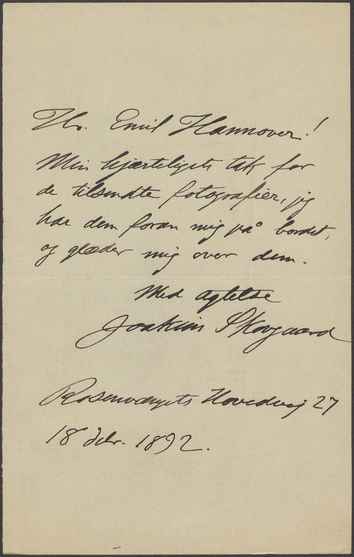 Hr. Emil Hannover!
Min hjerteligste tak for
de tilsendte fotografier, jeg
har dem foran mig på bordet,
og glæder mig over dem.
Med agtelse
Joakim Skovgaard
Rosenvængets Hovedvej 27
18 1892.